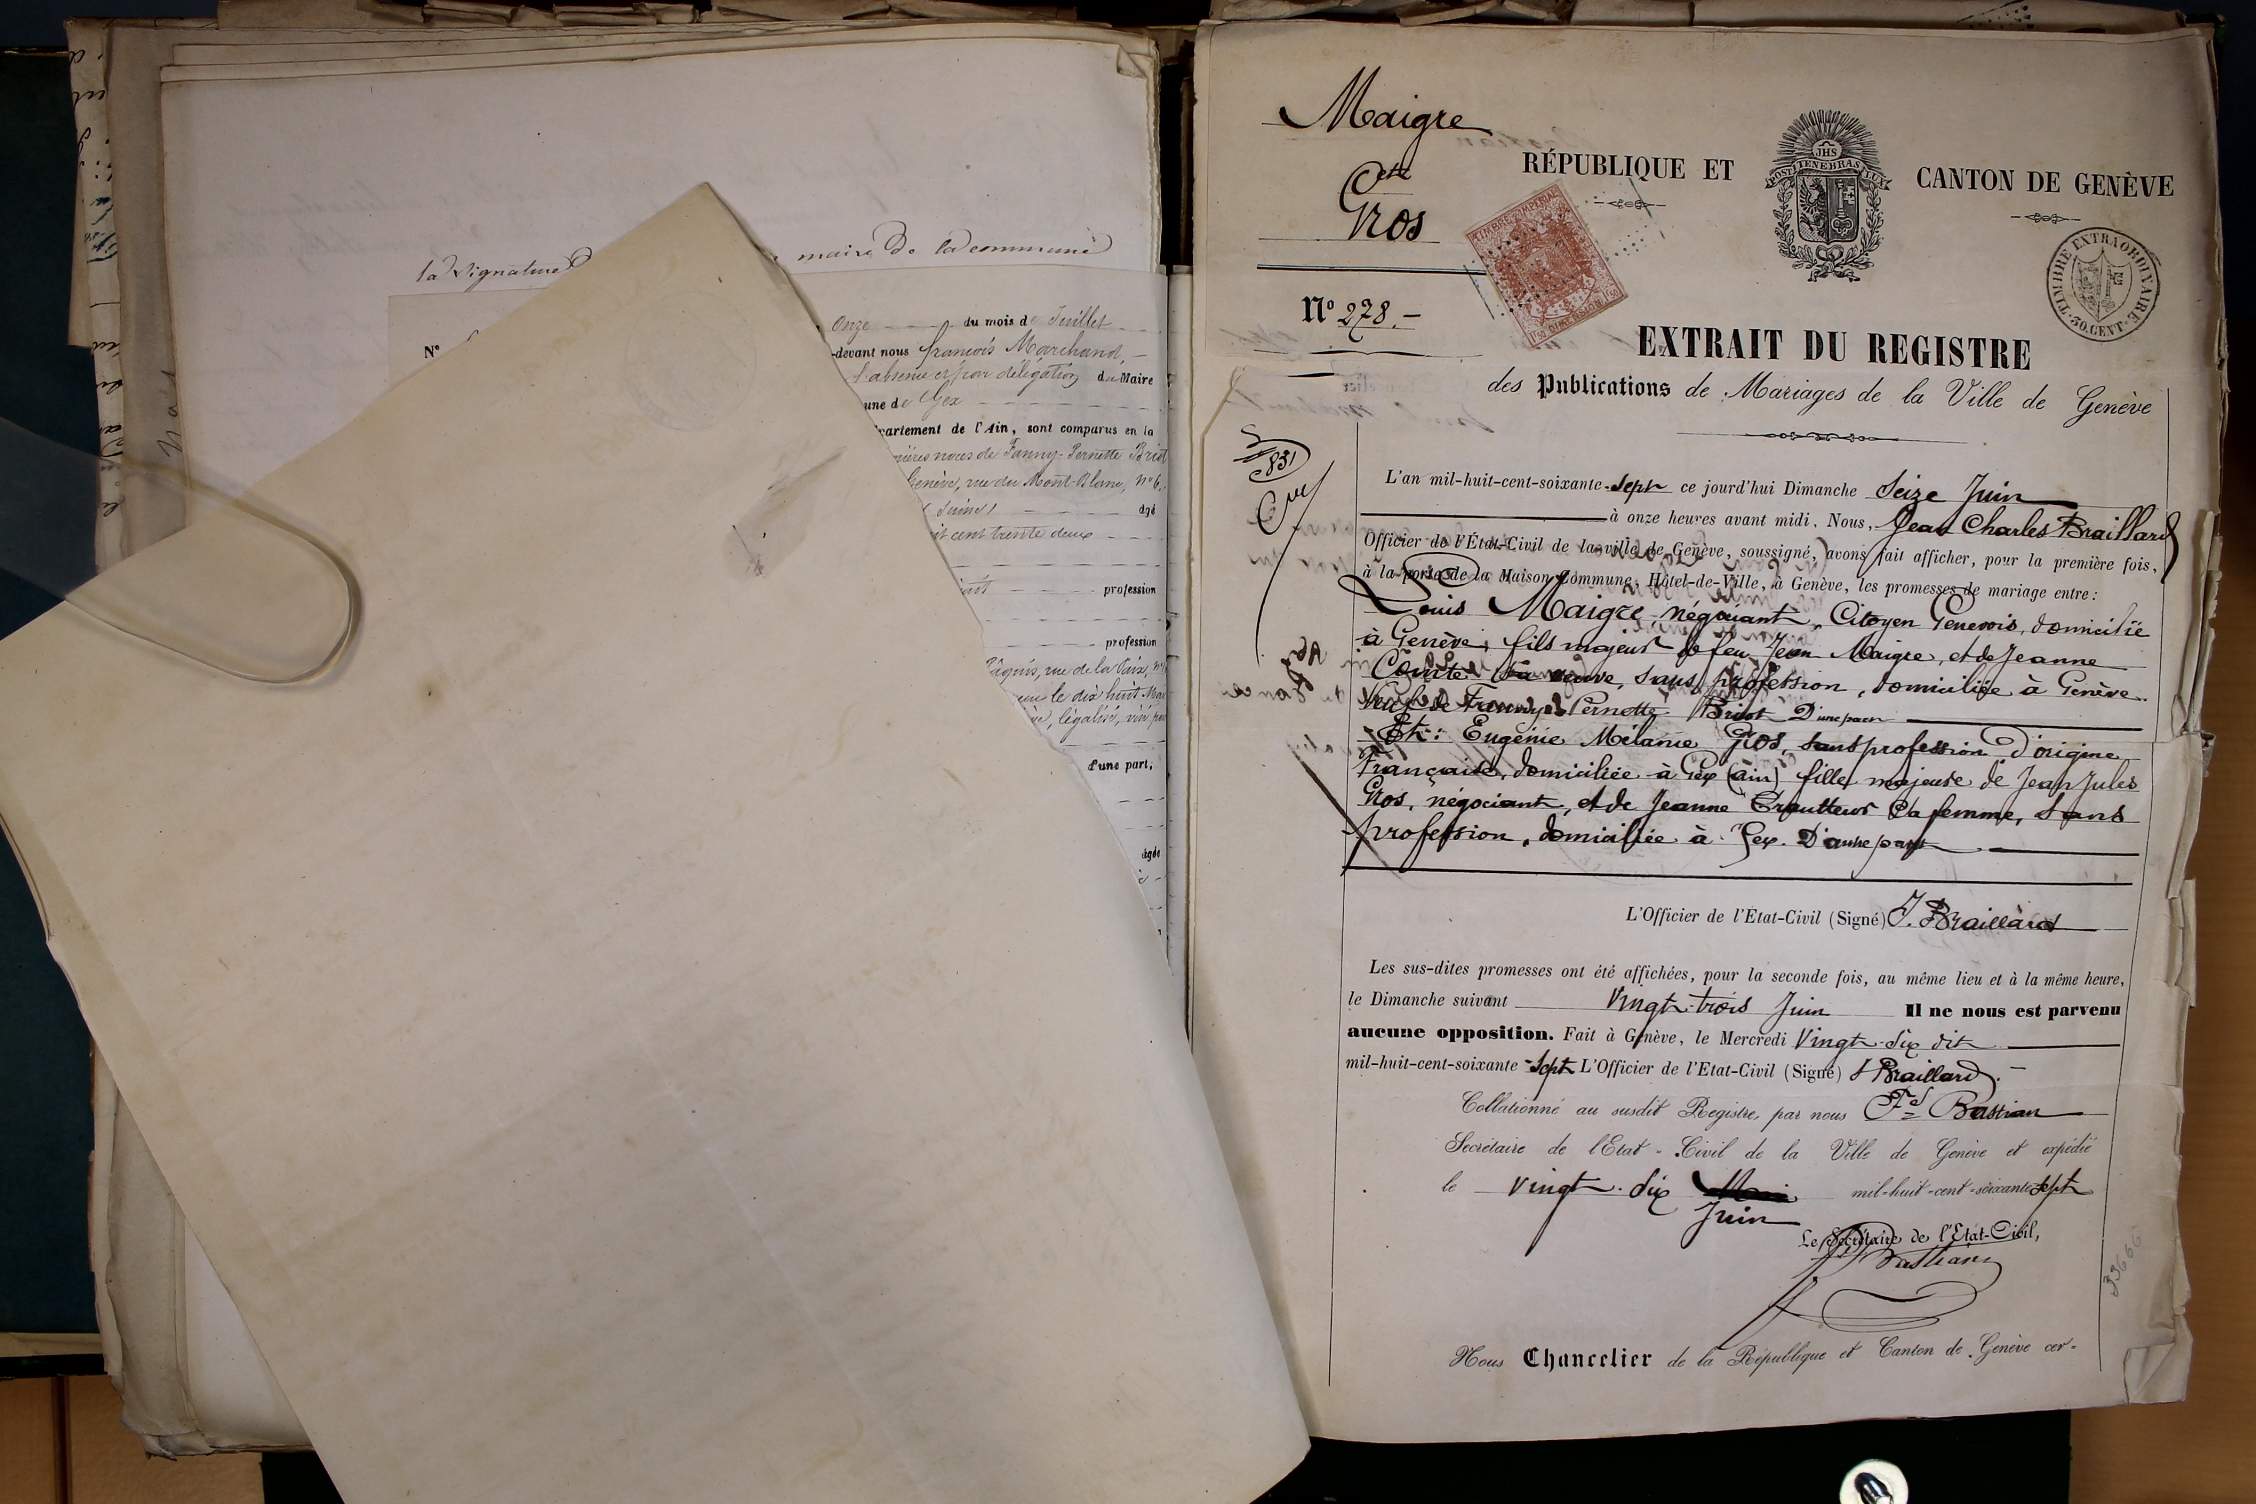 la signature
maire de la commune
N°
onze du mois de Juillet
-devant nous françois Marchand,
l'absence et par délégation du Maire
une de Gex
partement de l'Ain, sont comparus en la
noces de Fanny-Pernette Bridt
Genève, rue du Mont-Blanc, n° 6
agé
it cent trente deux
profession
profession
Pâquis, rue de la Paix, n°
le dix huit Mai
légalisé, visé par
d'une part,
agée
Maigre
et
Gros
N° 278.-
RÉPUBLIQUE ET
CANTON DE GENÈVE
JHS
POST TENEBRAS LUX
TIMBRE IMPÉRIAL
TIMBRE EXTRAORDINAIRE
30. CENT.
EXTRAIT DU REGISTRE
des Publications de Mariages de la Ville de Genève
831
L'an mil-huit-cent-soixante-sept ce jourd'hui Dimanche Seize Juin
à onze heures avant midi, Nous, Jean Charles Braillard
Officier de l'État-Civil de la ville de Genève, soussigné, avons fait afficher, pour la première fois,
à la porte de la Maison Commune, Hôtel-de-Ville, à Genève, les promesses de mariage entre:
Louis Maigre, négociant, Citoyen Genevois, domicilié
à Genève, fils majeur de feu Jean Maigre, et de Jeanne
Comte sa veuve, sans profession, domiciliée à Genève.
Veuf de Fanny Pernette Bridt D'une part
Et: Eugénie Mélanie Gros, sans profession d'origine
Française, domiciliée à Gex (ain) fille majeure de Jean Jules
Gros, négociant, et de Jeanne sa femme, sans
profession, domiciliée à Gex. D'autre part
L'Officier de l'État-Civil (Signé) J. Braillard
Les sus-dites promesses ont été affichées, pour la seconde fois, au même lieu et à la même heure,
le Dimanche suivant Vingt-trois Juin Il ne nous est parvenu
aucune opposition. Fait à Genève, le Mercredi Vingt-six dit
mil-huit-cent-soixante-sept L'Officier de l'Etat-Civil (Signé) J Braillard.
Collationné au susdit Registre, par nous Fd Bastian
Secrétaire de l'Etat-Civil de la Ville de Genève et expédié
le vingt-six Mai mil-huit-cent-soixante sept
Juin
Le Secrétaire de l'Etat-Civil,
Bastian
33666
Nous Chancelier de la République et Canton de Genève cer-